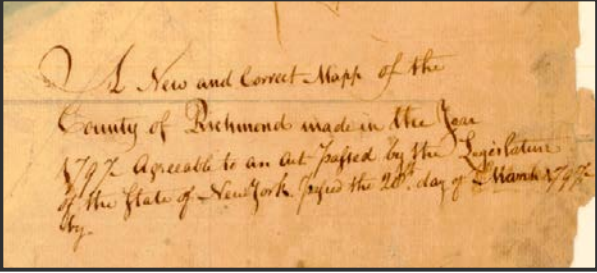 A New and Correct Mapp of the
County of Richmond made in the Year
1797. Agreeable to an act passed by the Legislature
of the State of New York. passed the 28th. day of March 1797.
by.